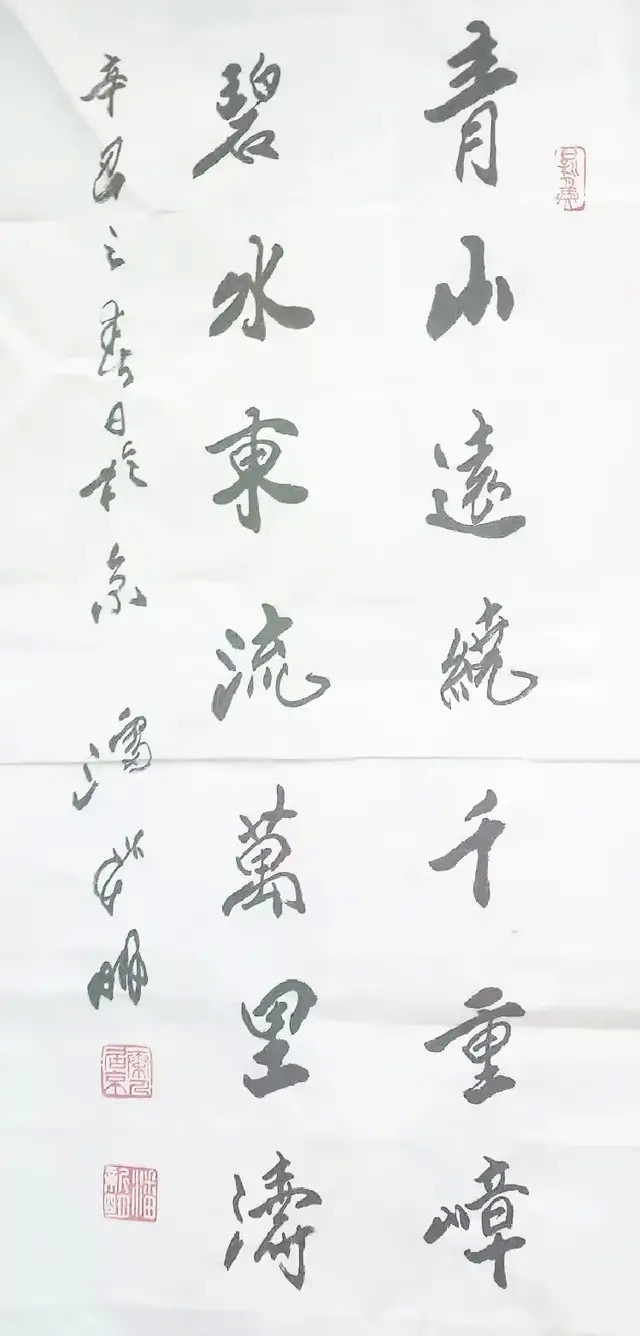 青山遠繞千重嶂
碧水東流萬里濤
辛丑之春日於京 潘